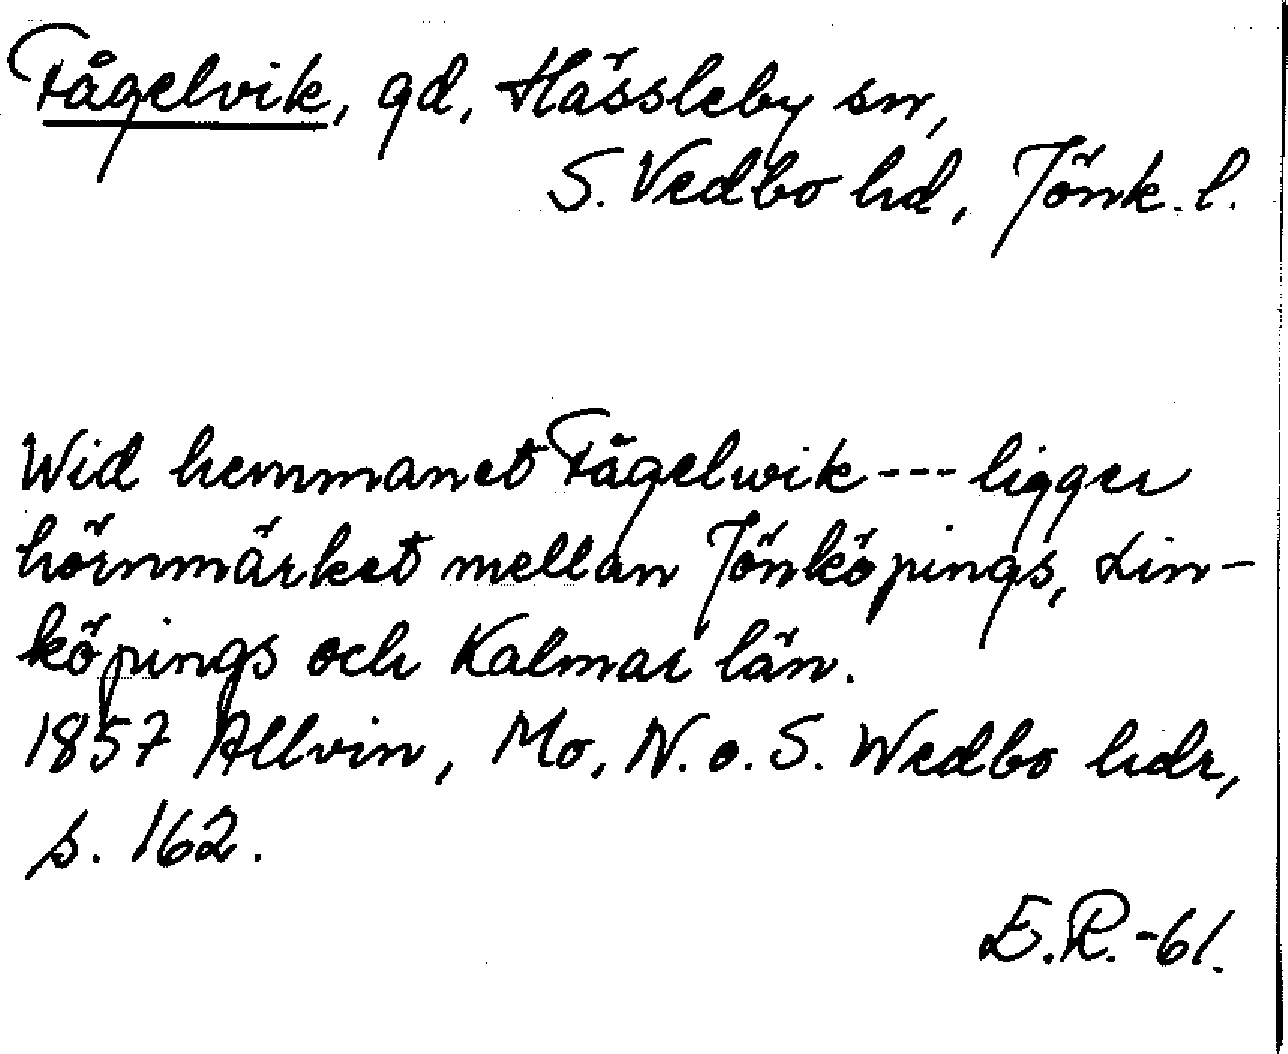 Fågelvik, gd, Hässleby sn,
S. Vedbo hd, Jönk. l.
Wid hemmanet Fågelwik --- ligger
hörnmärket mellan Jönköpings, Lin-
köpings och Kalmar län.
1857 Allvin, Mo, N. o. S. Wedbo hdr,
s. 162.
E.R.-61.